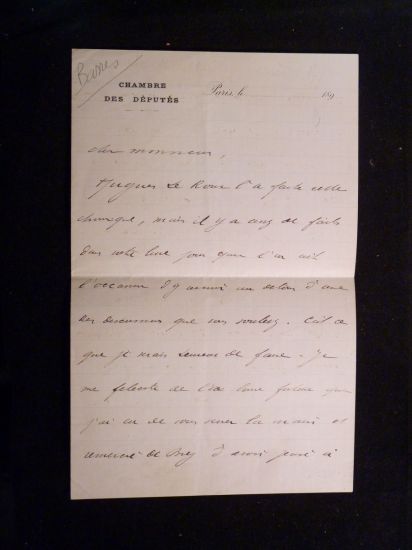 Barrès
CHAMBRE
DES DÉPUTÉS
Paris, le 189
Cher monsieur,
Hugues Le Roux l'a faite cette
chronique, mais il y a de faits
dans votre livre pour que l'on ait
l'occasion d'y revenir au d'une
des discussions que vous soulevez. C'est ce
que je de faire. Je
me félicite de bonne fortune que
j'ai eu de vous serrer la main et
remercie de d'avoir pensé à